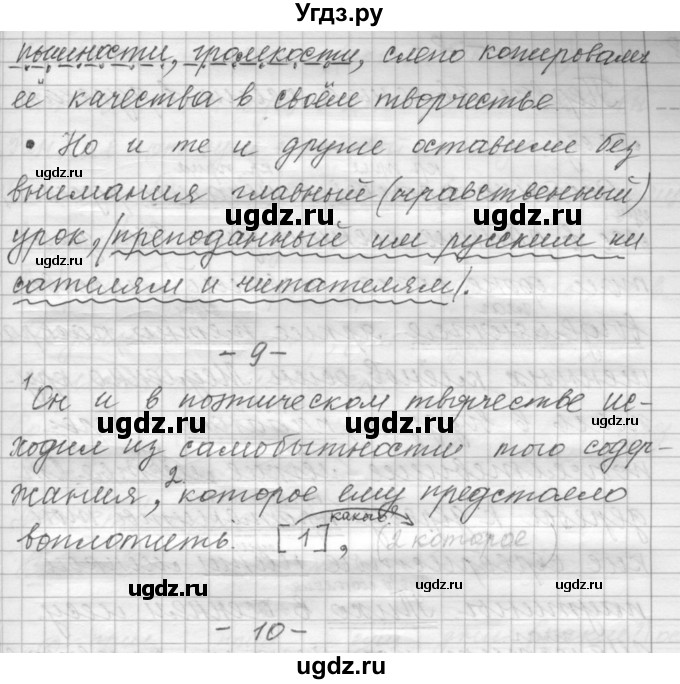 Угдз.ру
пышности, громкости, слепо копировали
её качества в своём творчестве.
• Но и те и другие оставили без
ugdz.ru
внимания главный (нравственный)
ugdz.ru ugdz.ru
урок, |преподанный им русским пи
ugdz.ru
сателям и читателям|.
ugdz.ru
- 9 -
¹Он и в поэтическом творчестве ис-
ugdz.ru ugdz.ru
ходил из самобытности того содер-
ugdz.ru
жания, ²которое ему предстояло
какие?
воплотить. [1], (2 которое)
ugdz.ru ugdz.ru
- 10 -
ugdz.ru